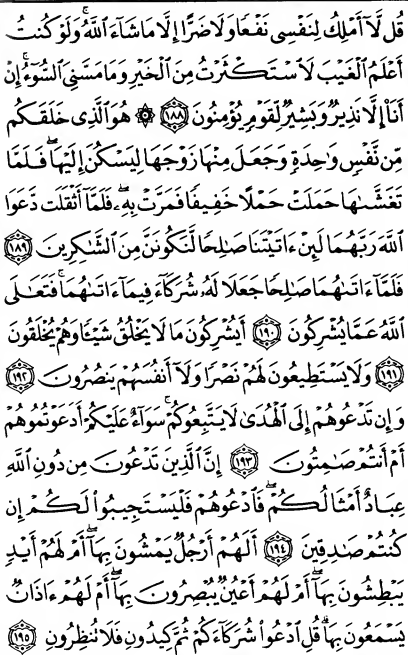 قُل لَّآ أَمْلِكُ لِنَفْسِى نَفْعًا وَلَا ضَرًّا إِلَّا مَا شَآءَ ٱللَّهُ ۚ وَلَوْ كُنتُ
أَعْلَمُ ٱلْغَيْبَ لَٱسْتَكْثَرْتُ مِنَ ٱلْخَيْرِ وَمَا مَسَّنِىَ ٱلسُّوٓءُ ۚ إِنْ
أَنَا۠ إِلَّا نَذِيرٌ وَبَشِيرٌ لِّقَوْمٍ يُؤْمِنُونَ ١٨٨ ۞ هُوَ ٱلَّذِى خَلَقَكُم
مِّن نَّفْسٍ وَٰحِدَةٍ وَجَعَلَ مِنْهَا زَوْجَهَا لِيَسْكُنَ إِلَيْهَا ۖ فَلَمَّا
تَغَشَّىٰهَا حَمَلَتْ حَمْلًا خَفِيفًا فَمَرَّتْ بِهِۦ ۖ فَلَمَّآ أَثْقَلَت دَّعَوَا
ٱللَّهَ رَبَّهُمَا لَئِنْ ءَاتَيْتَنَا صَٰلِحًا لَّنَكُونَنَّ مِنَ ٱلشَّٰكِرِينَ ١٨٩
فَلَمَّآ ءَاتَىٰهُمَا صَٰلِحًا جَعَلَا لَهُۥ شُرَكَآءَ فِيمَآ ءَاتَىٰهُمَا ۚ فَتَعَٰلَى
ٱللَّهُ عَمَّا يُشْرِكُونَ ١٩٠ أَيُشْرِكُونَ مَا لَا يَخْلُقُ شَيْـًٔا وَهُمْ يُخْلَقُونَ
١٩١ وَلَا يَسْتَطِيعُونَ لَهُمْ نَصْرًا وَلَآ أَنفُسَهُمْ يَنصُرُونَ ١٩٢
وَإِن تَدْعُوهُمْ إِلَى ٱلْهُدَىٰ لَا يَتَّبِعُوكُمْ ۚ سَوَآءٌ عَلَيْكُمْ أَدَعَوْتُمُوهُمْ
أَمْ أَنتُمْ صَٰمِتُونَ ١٩٣ إِنَّ ٱلَّذِينَ تَدْعُونَ مِن دُونِ ٱللَّهِ
عِبَادٌ أَمْثَالُكُمْ ۖ فَٱدْعُوهُمْ فَلْيَسْتَجِيبُوا۟ لَكُمْ إِن
كُنتُمْ صَٰدِقِينَ ١٩٤ أَلَهُمْ أَرْجُلٌ يَمْشُونَ بِهَآ ۖ أَمْ لَهُمْ أَيْدٍ
يَبْطِشُونَ بِهَآ ۖ أَمْ لَهُمْ أَعْيُنٌ يُبْصِرُونَ بِهَآ ۖ أَمْ لَهُمْ ءَاذَانٌ
يَسْمَعُونَ بِهَا ۗ قُلِ ٱدْعُوا۟ شُرَكَآءَكُمْ ثُمَّ كِيدُونِ فَلَا تُنظِرُونِ ١٩٥